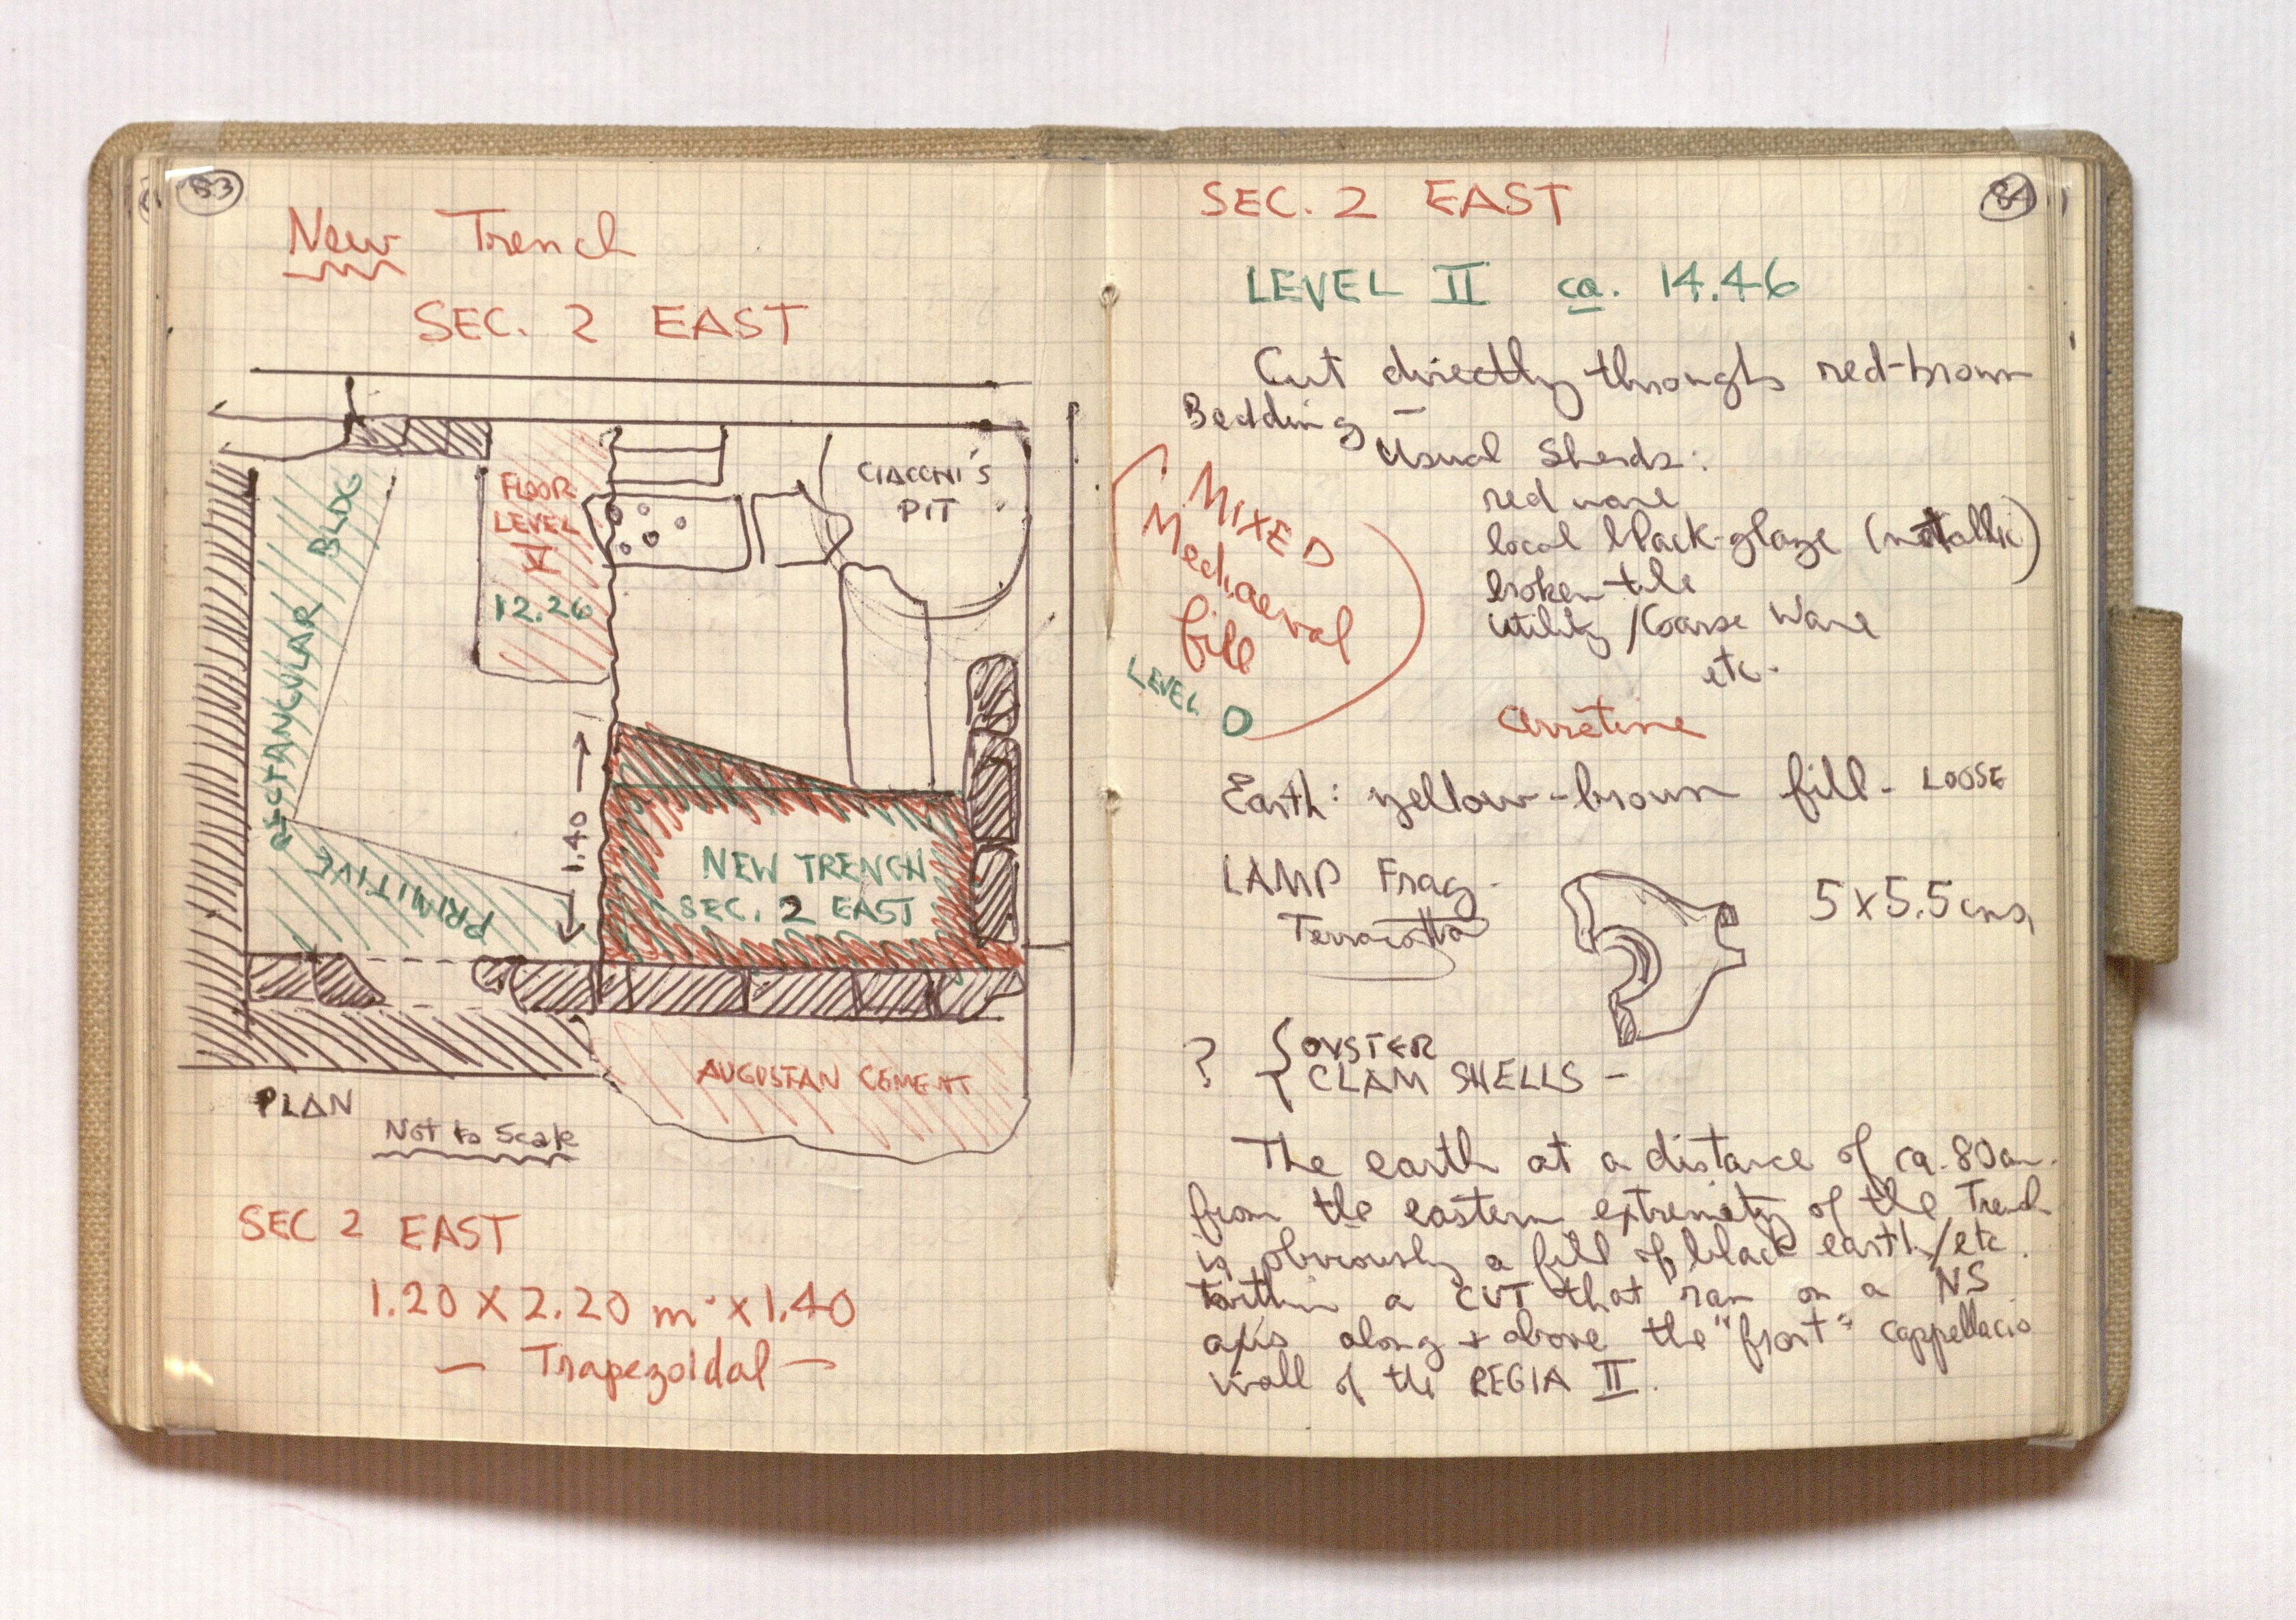 83
New Trench
SEC. 2 EAST
CIACCHI'S
PIT
FLOOR
LEVEL
V
12.26
RECTANGULAR BLDG
PRIMITIVE
1.40
NEW TRENCH
SEC. 2 EAST
AUGUSTAN CEMENT
PLAN
Not to Scale
SEC 2 EAST
1.20 X 2.20 m x 1.40
— Trapezoidal —
84
SEC. 2 EAST
LEVEL II ca. 14.46
Cut directly through red-brown
Bedding —
Usual Sherds:
red ware
local black-glaze (metallic)
broken tile
utility / Coarse Ware
etc.
Arretine
MIXED
Mediaeval
fill
LEVEL D
Earth: yellow-brown fill - LOOSE
LAMP Frag -
Terracotta
5 x 5.5 cms
? { OYSTER
CLAM SHELLS -
The earth at a distance of ca. 80 cm.
from the eastern extremity of the Trench
is obviously a fill of black earth/etc.
within a CUT that ran on a NS
axis along + above the "front" Cappellacio
wall of the REGIA II.